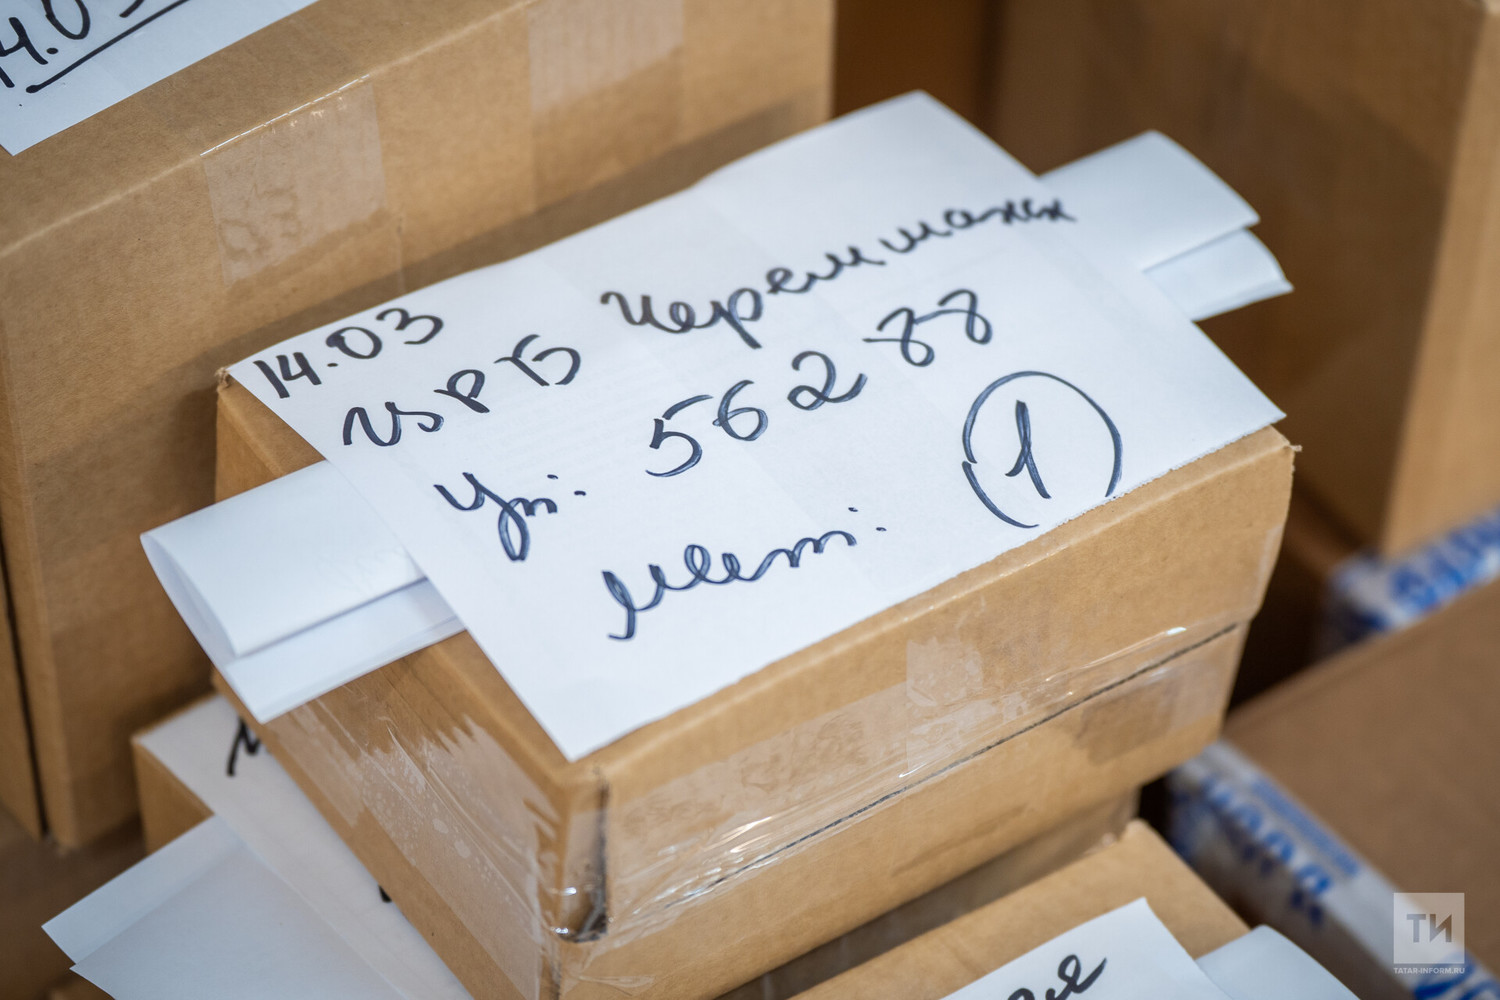 4.03
14.03
ЦРБ Черемшанск
Уп: 56288
Мет: 1
ТИ
TATAR-INFORM.RU